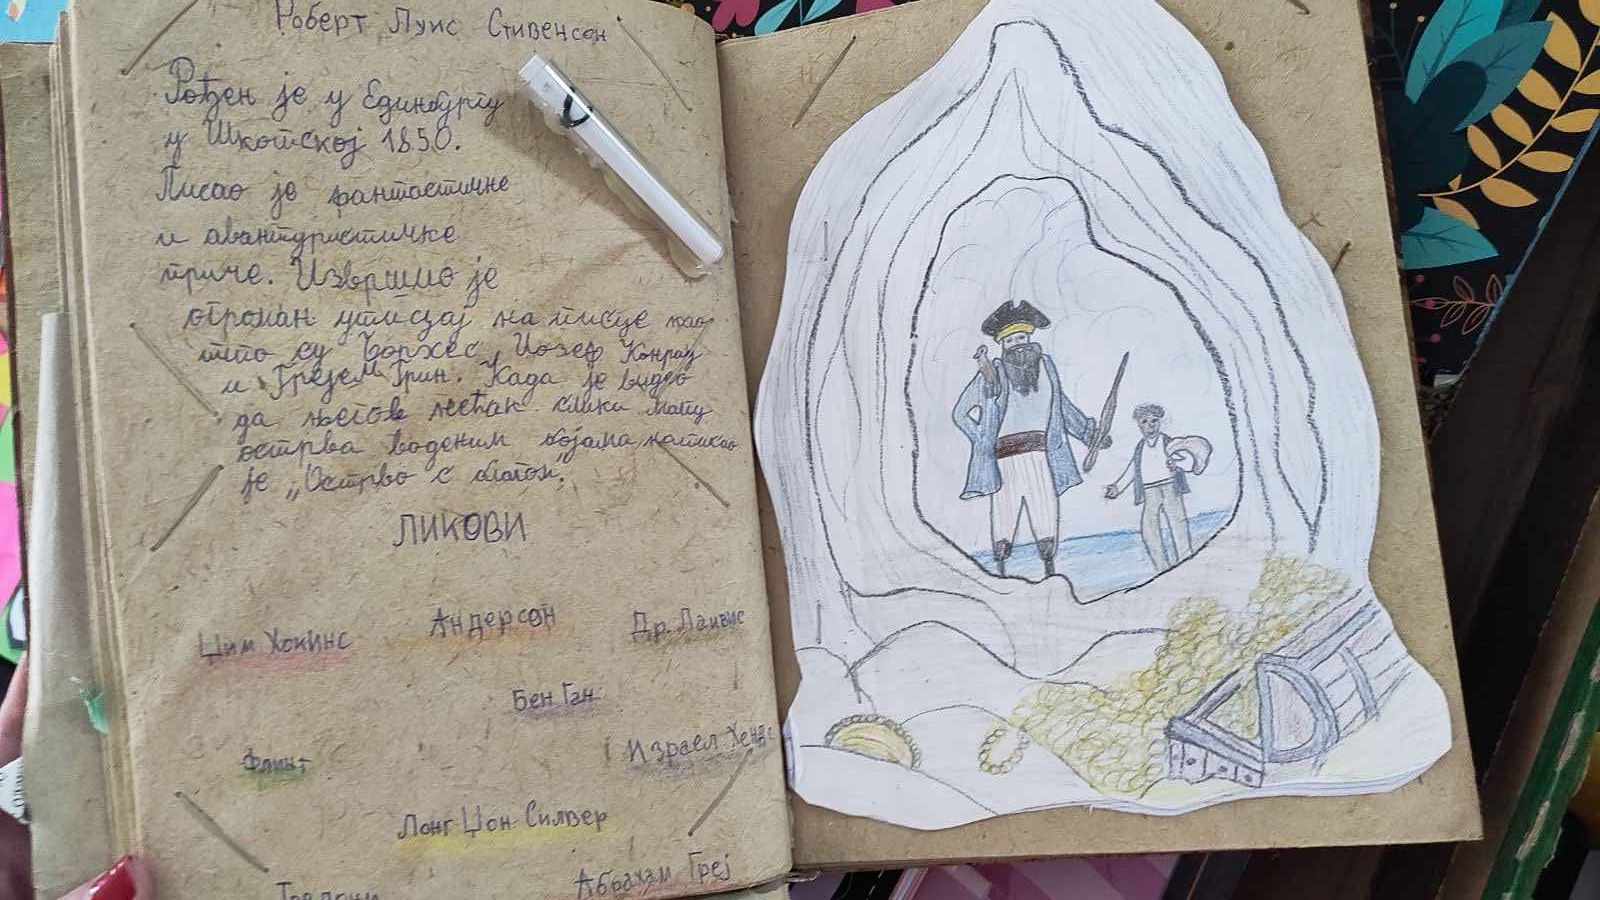 Роберт Луис Стивенсон
Рођен је у Единбургу
у Шкотској 1850.
Писао је фантастичне
и авантуристичке
приче. Извршио је
огроман утисај на писце као
што су Борхес, Јозеф Конрад
и Грејем Грин. Када је видео
да његов пећак слика мапу
острва воденим бојама написао
је „Острво с благом“.
ЛИКОВИ
Џим Хокинс
Андерсон
Др. Ливис
Бен Ган
Флинт
Израел Хендс
Лонг Џон Силвер
Абрахам Греј